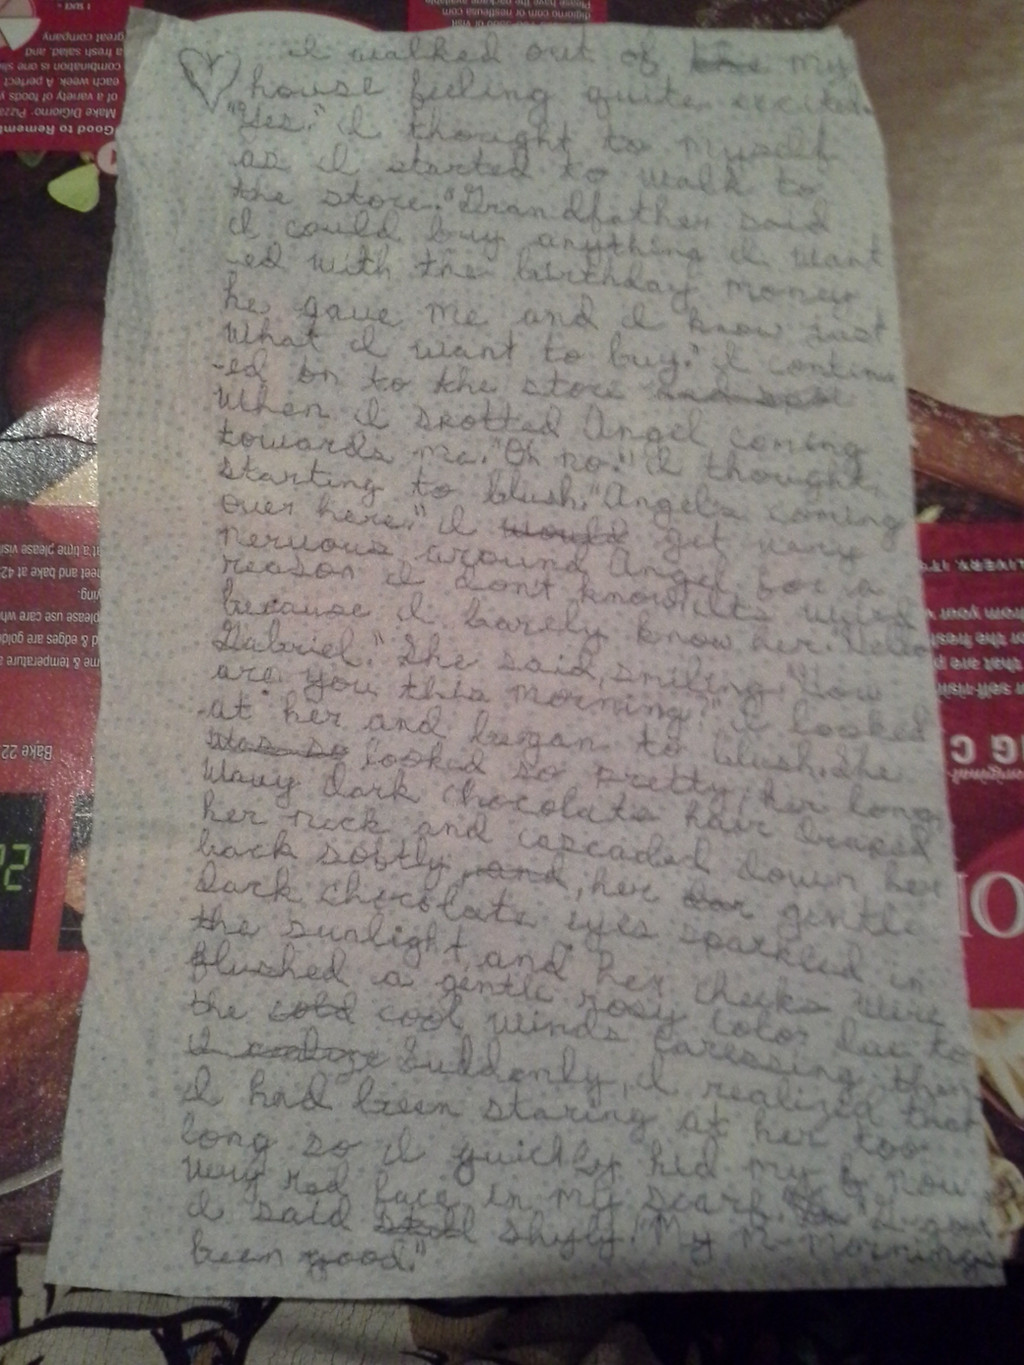 I walked out of my
house feeling quite excited.
"Yes." I thought to myself
as I started to walk to
the store. "Grandfather said
I could buy anything I want
-ed with the birthday money
he gave me and I know just
what I want to buy." I continu
-ed on to the store
when I spotted Angel coming
towards me. "Oh no." I thought,
starting to blush. "Angel's coming
over here." I would get very
nervous around Angel for a
reason I don't know. It's weird
because I barely know her. "Hello
Gabriel." She said, smiling. "How
are you this morning?" I looked
at her and began to blush. She
was so looked so pretty, her long
wavy dark chocolate hair draped
her neck and cascaded down her
back softly, and, her gentle
dark chocolate eyes sparkled in
the sunlight, and her cheeks were
flushed a gentle rosy color due to
the cold cool winds caressing them
Suddenly, I realized that
I had been staring at her too
long so I quickly hid my now
very red face in my scarf.
I said shyly. "My m-morning's
been good."
Good to Remember
Make DiGiorno Pizza
of a variety of foods
each week. A perfect
combination is one
a fresh salad, and
great company
digiorno.com or nestleusa.com
Please have the package available
at a time please
meet and bake at 42
please use care
& edges are golden
me & temperature
Bake 22
22
from your
for the fresh
that are
self-risi
original
NG C
IO